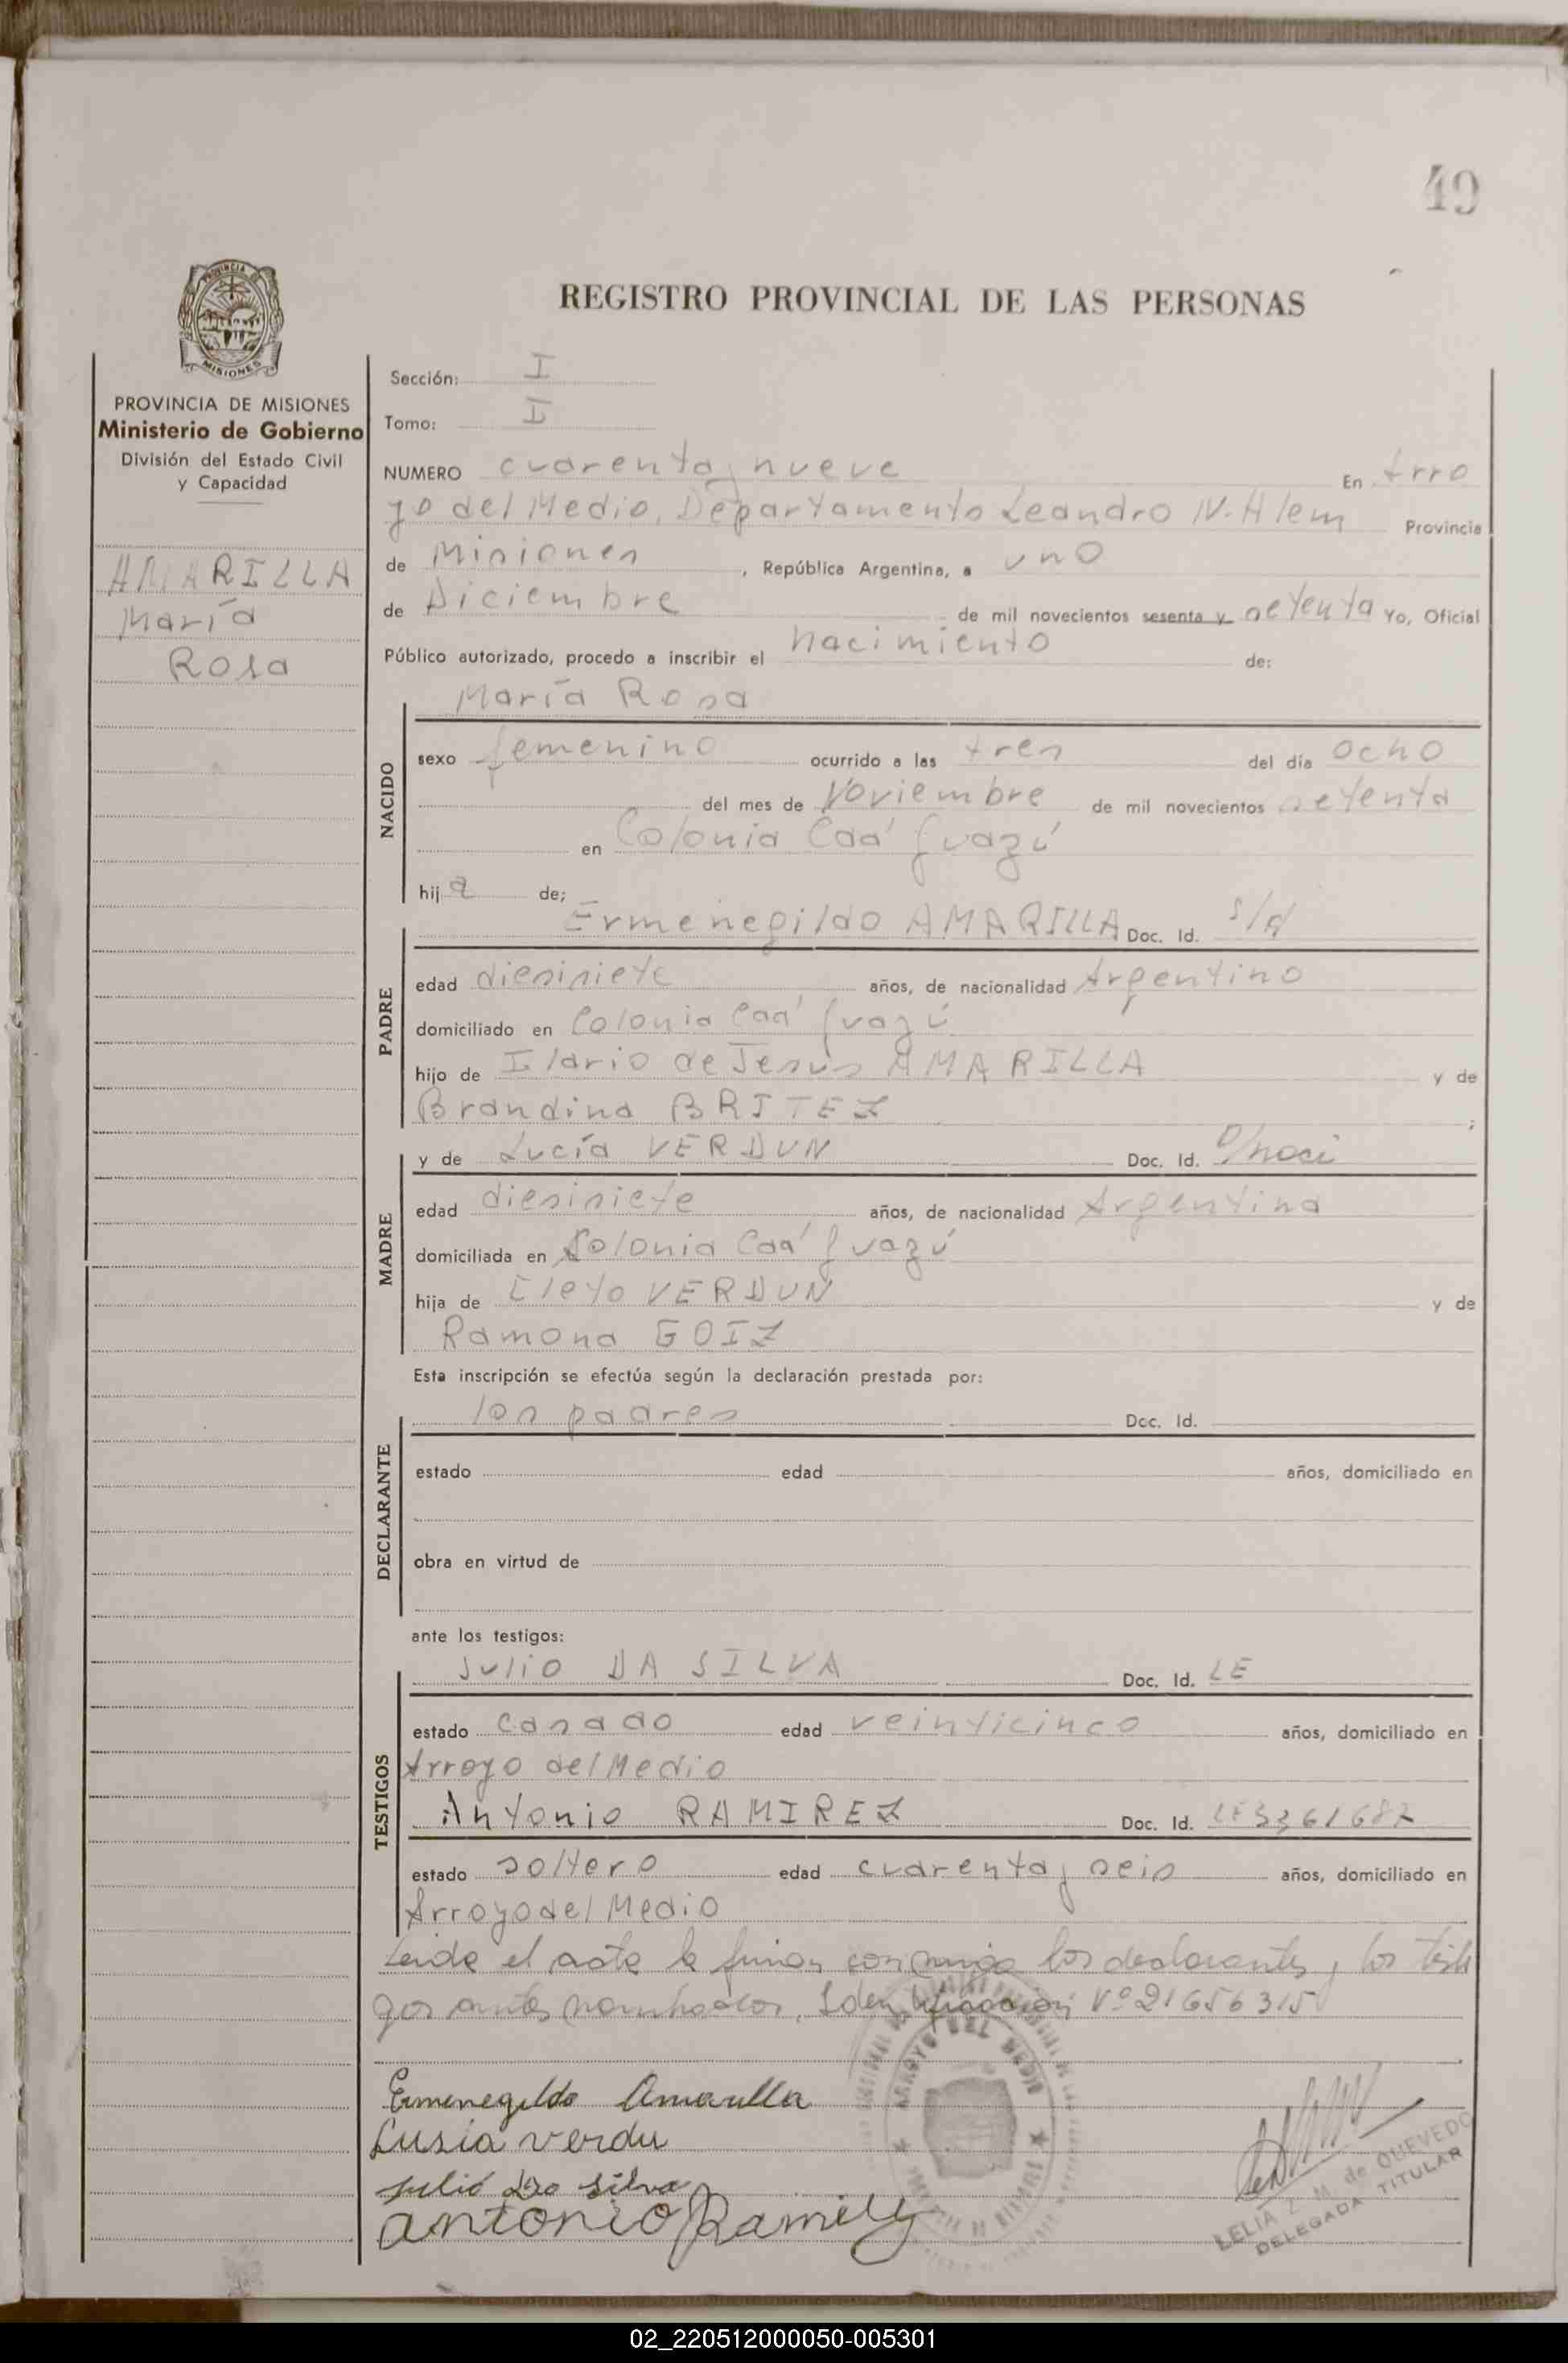 49
PROVINCIA DE
MISIONES
REGISTRO PROVINCIAL DE LAS PERSONAS
PROVINCIA DE MISIONES
Ministerio de Gobierno
División del Estado Civil
y Capacidad
AMARILLA
María
Rosa
Sección: I
Tomo: I
NUMERO cuarenta y nueve En Arro
yo del Medio, Departamento Leandro N. Alem Provincia
de Misiones, República Argentina, a uno
de Diciembre de mil novecientos sesenta y setenta Yo, Oficial
Público autorizado, procedo a inscribir el nacimiento de:
María Rosa
NACIDO
sexo femenino ocurrido a las tres del día ocho
del mes de Noviembre de mil novecientos setenta
en Colonia Caá guazú
hija de;
Ermenegildo AMARILLA Doc. Id. s/d
PADRE
edad diesisiete años, de nacionalidad Argentino
domiciliado en Colonia Caá guazú
hijo de Ilario de Jesús AMARILLA y de
Brandina BRITEZ ;
y de Lucía VERDUN Doc. Id.
MADRE
edad diesisiete años, de nacionalidad Argentina
domiciliada en Colonia Caá guazú
hija de Cleto VERDUN y de
Ramona GOIZ
Esta inscripción se efectúa según la declaración prestada por:
los padres Doc. Id.
DECLARANTE
estado edad años, domiciliado en
obra en virtud de
ante los testigos:
Julio DA SILVA Doc. Id. LE
TESTIGOS
estado casado edad veinticinco años, domiciliado en
Arroyo del Medio
Antonio RAMIREZ Doc. Id. LE
estado soltero edad cuarenta y seis años, domiciliado en
Arroyo del Medio
Leida el acta la firman conmigo los declarantes y los testi
gos antes nombrados. Identificación Nº 21656315
ARROYO DEL MEDIO
Ermenegildo Amarilla
Lusia verdu
Julio Da Silva
antonio Ramirez
LELIA Z. M. de QUEVEDO
DELEGADA TITULAR
02_220512000050-005301